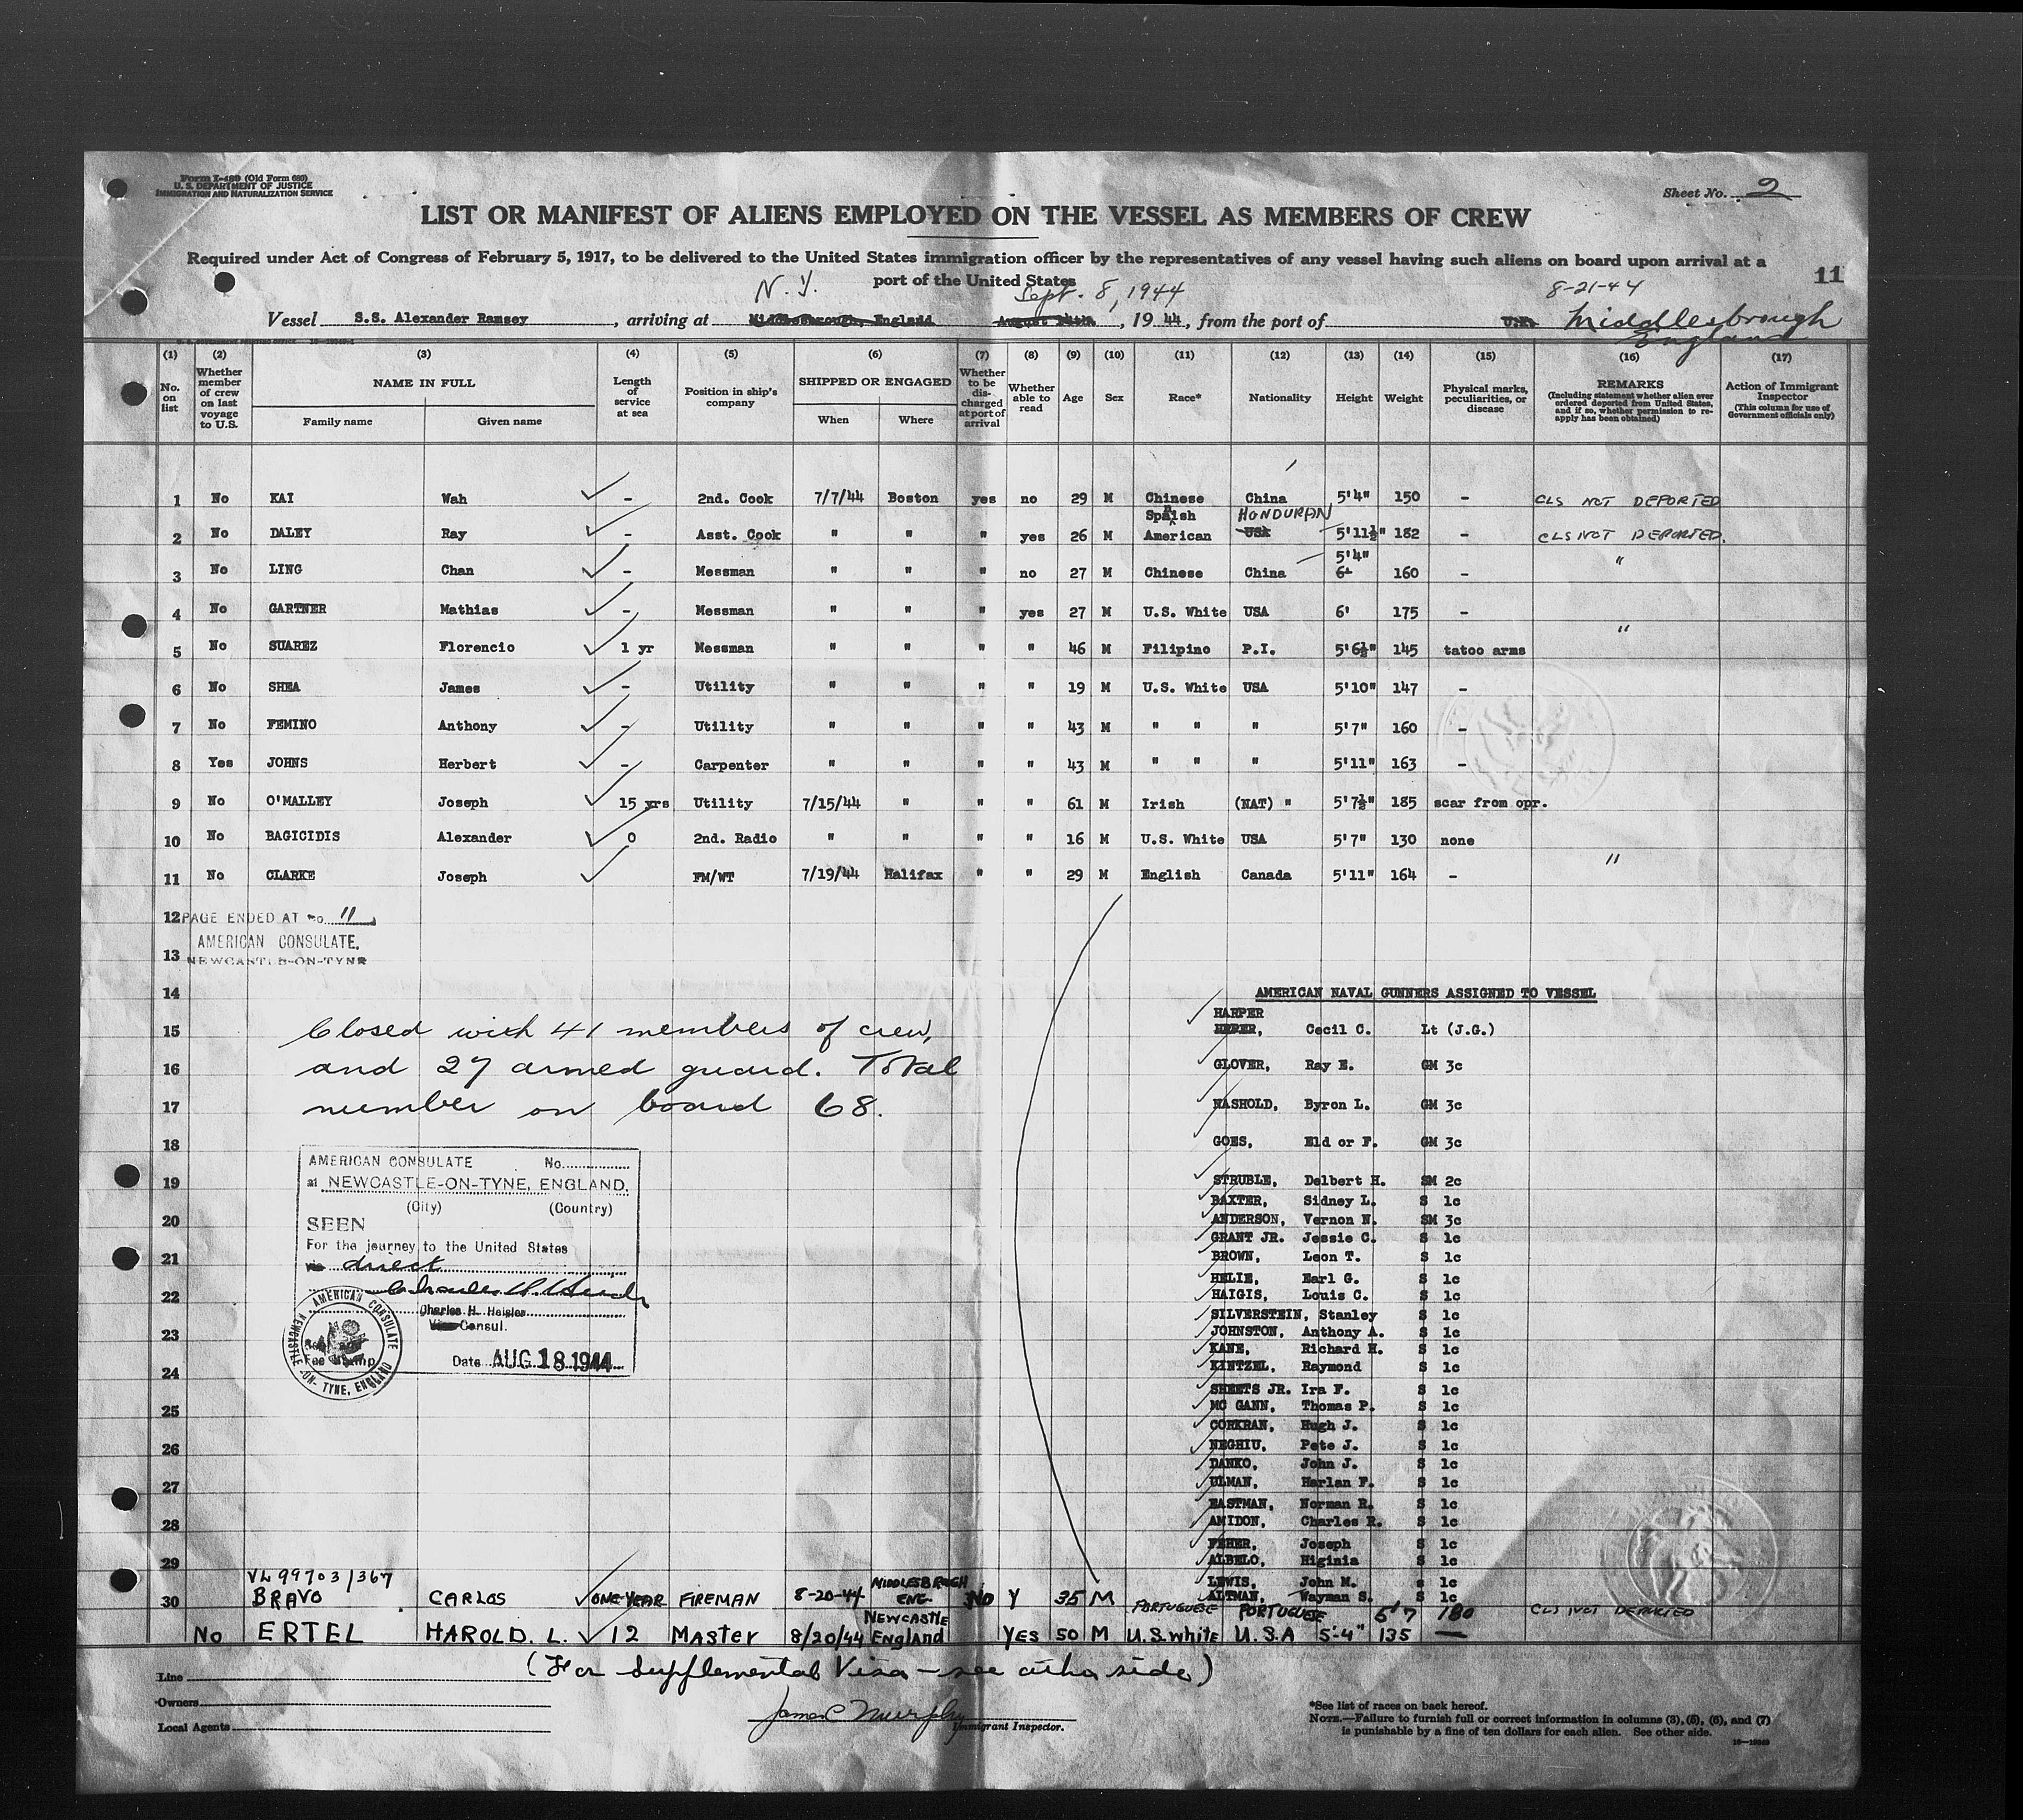 Form I-489 (Old Form 689)
U. S. DEPARTMENT OF JUSTICE
IMMIGRATION AND NATURALIZATION SERVICE
Sheet No. 2
LIST OR MANIFEST OF ALIENS EMPLOYED ON THE VESSEL AS MEMBERS OF CREW
Required under Act of Congress of February 5, 1917, to be delivered to the United States immigration officer by the representatives of any vessel having such aliens on board upon arrival at a
port of the United States
11
N. Y. Sept. 8, 1944 8-21-44
Vessel S.S. Alexander Ramsey, arriving at Middlesbrough, England August 14th, 1944, from the port of U.K. Middlesbrough
England
(1) (2) (3) (4) (5) (6) (7) (8) (9) (10) (11) (12) (13) (14) (15) (16) (17)
No. on list
Whether member of crew on last voyage to U.S.
NAME IN FULL
Family name Given name
Length of service at sea
Position in ship's company
SHIPPED OR ENGAGED
When Where
Whether to be discharged at port of arrival
Whether able to read
Age
Sex
Race*
Nationality
Height
Weight
Physical marks, peculiarities, or disease
REMARKS
(Including statement whether alien ever ordered deported from United States, and if so, whether permission to reapply has been obtained)
Action of Immigrant Inspector
(This column for use of Government officials only)
1 No KAI Wah - 2nd. Cook 7/7/44 Boston yes no 29 M Chinese China 5'4" 150 - CLS NOT DEPORTED
Spanish HONDURAN
2 No DALEY Ray - Asst. Cook " " " yes 26 M American USA 5'11½" 182 - CLS NOT DEPORTED.
5'4"
3 No LING Chan - Messman " " " no 27 M Chinese China 6' 160 - "
4 No GARTNER Mathias - Messman " " " yes 27 M U.S. White USA 6' 175 -
5 No SUAREZ Florencio 1 yr Messman " " " " 46 M Filipino P.I. 5'6½" 145 tatoo arms "
6 No SHEA James - Utility " " " " 19 M U.S. White USA 5'10" 147 -
7 No FEMINO Anthony - Utility " " " " 43 M " " " 5'7" 160 -
8 Yes JOHNS Herbert - Carpenter " " " " 43 M " " " 5'11" 163 -
9 No O'MALLEY Joseph 15 yrs Utility 7/15/44 " " " 61 M Irish (NAT) " 5'7½" 185 scar from opr.
10 No BAGICIDIS Alexander 0 2nd. Radio " " " " 16 M U.S. White USA 5'7" 130 none
11 No CLARKE Joseph FM/WT 7/19/44 Halifax " " 29 M English Canada 5'11" 164 - "
12 PAGE ENDED AT No. 11
AMERICAN CONSULATE,
13 NEWCASTLE-ON-TYNE
14 AMERICAN NAVAL GUNNERS ASSIGNED TO VESSEL
HARPER
15 Closed with 41 members of crew, Cecil C. Lt (J.G.)
16 and 27 armed guard. Total GLOVER, Ray E. GM 3c
17 number on board 68. NASHOLD, Byron L. GM 3c
18 GOES, Eld or F. GM 3c
AMERICAN CONSULATE No.
19 at NEWCASTLE-ON-TYNE, ENGLAND.
(City) (Country)
20 SEEN
For the journey to the United States
21 via direct
22
Charles H. Heisler
23 Vice Consul.
24 Date AUG 18 1944
AMERICAN CONSULATE NEWCASTLE-ON-TYNE, ENGLAND
Fee Stamp
STRUBLE, Delbert H. SM 2c
BAXTER, Sidney L. S 1c
ANDERSON, Vernon N. SM 3c
GRANT JR. Jessie C. S 1c
BROWN, Leon T. S 1c
HELIE, Earl G. S 1c
HAIGIS, Louis C. S 1c
SILVERSTEIN, Stanley S 1c
JOHNSTON, Anthony A. S 1c
KANE, Richard H. S 1c
KINTZEL, Raymond S 1c
SHEETS JR. Ira F. S 1c
25 MC GANN, Thomas P. S 1c
CORKRAN, Hugh J. S 1c
26 NEGHIU, Pete J. S 1c
DANKO, John J. S 1c
27 ULMAN, Harlan F. S 1c
EASTMAN, Norman R. S 1c
28 AMIDON, Charles R. S 1c
FEHER, Joseph S 1c
29 ALBELO, Higinia S 1c
LEWIS, John M. s 1c
ALTMAN, Wayman S. S 1c
VL 99703/367
30 BRAVO CARLOS ONE YEAR FIREMAN 8-20-44 MIDDLESBROUGH ENG. No Y 35 M PORTUGUESE PORTUGUESE 5'7 180 CLS NOT DEPORTED
No ERTEL HAROLD. L. 12 MASTER 8/20/44 NEWCASTLE England YES 50 M U.S. White U.S.A 5'-4" 135 —
(For Supplemental Visa - see other side)
Line
Owners
Local Agents
James Murphy
Immigrant Inspector.
*See list of races on back hereof.
NOTE.—Failure to furnish full or correct information in columns (3), (5), (6), and (7)
is punishable by a fine of ten dollars for each alien. See other side.